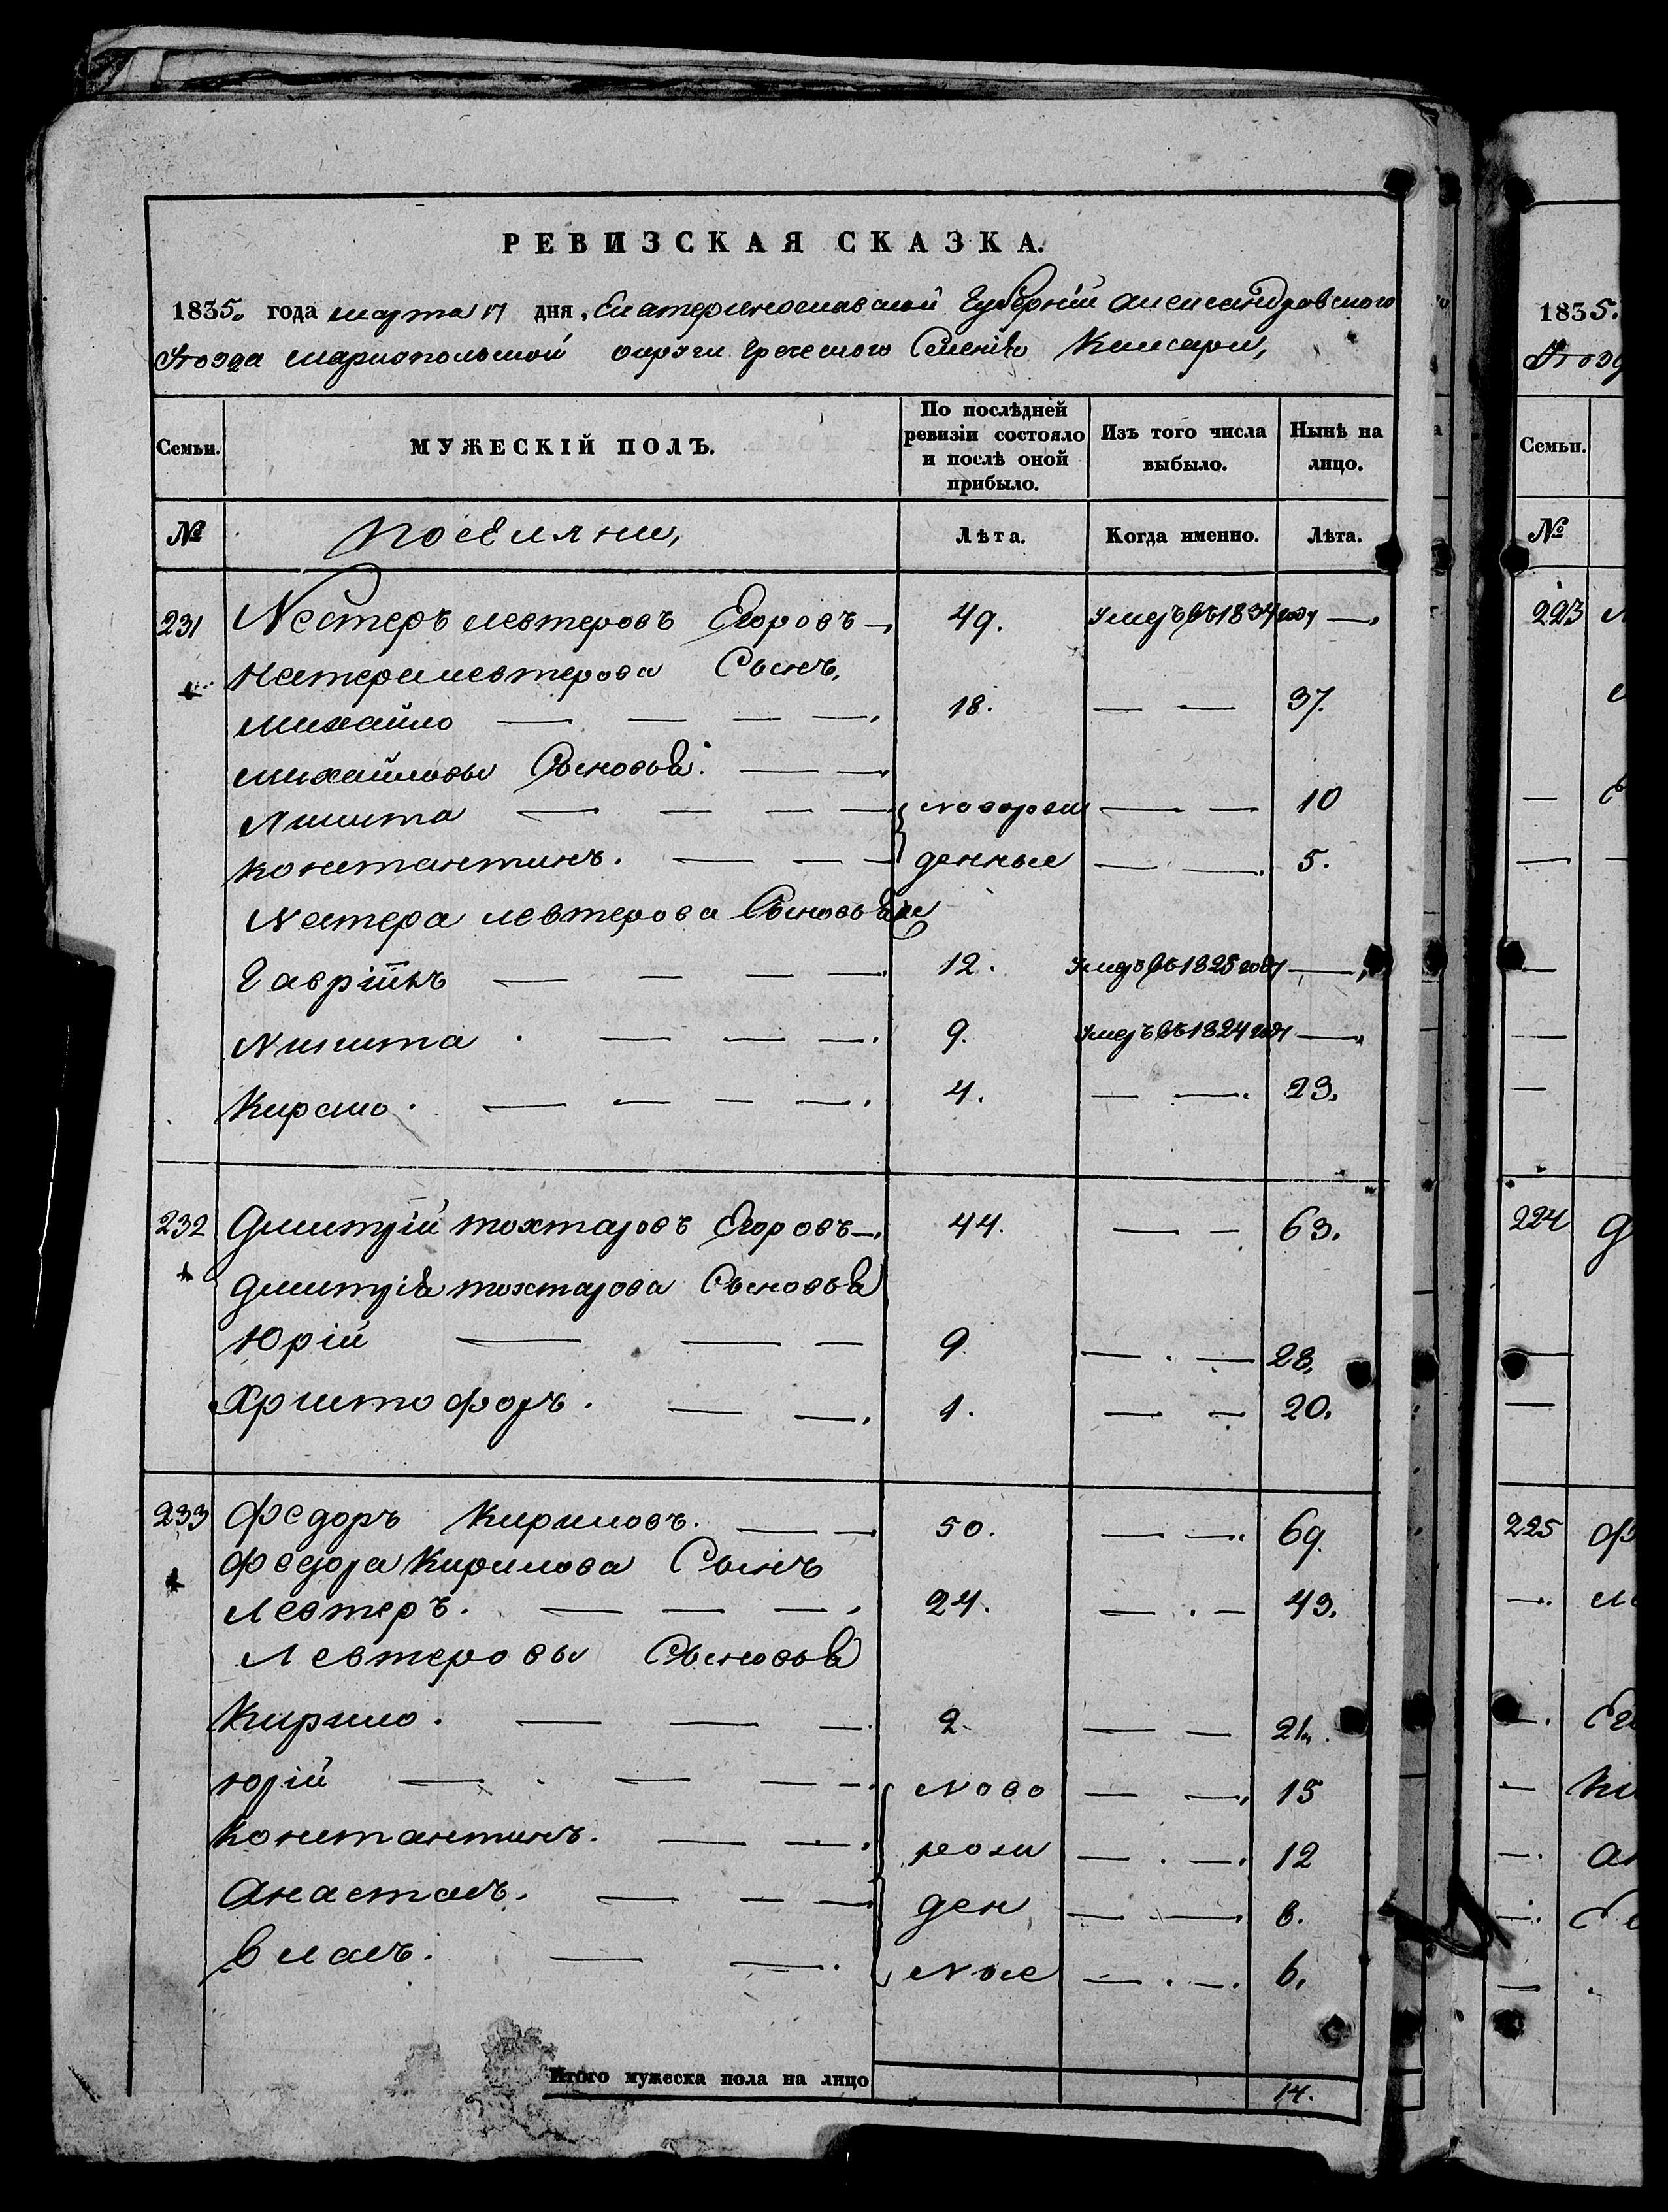 РЕВИЗСКАЯ СКАЗКА.
1835. года марта 17 дня, Екатеринославской Губерніи Александровского
Уезда мариопольской округи греческого Селенія
Семьи. МУЖЕСКІЙ ПОЛЪ. По послѣдней ревизіи состояло и послѣ оной прибыло. Изъ того числа выбыло. Нынѣ на лицо.
№ Поселяне, Лѣта. Когда именно. Лѣта.
231 Нестеръ левтеровъ Егоровъ —, 49. Умеръ въ 1834 году —,
Нестера левтерова Сынъ,
михайло — — — —, 18. — — 37.
михайловы Сыновья. — —
Никита — — — — новорож — — 10
константинъ. — — — денные — — 5.
Нестера левтерова Сыновья же
Гавріилъ — — — — 12. Умеръ въ 1825 году —,
Никита. — — —. 9. Умеръ въ 1824 году —,
Кирило. — — — —. 4. — —. 23.
232 Дмитрій тохтаровъ Егоровъ —. 44. — — 63.
Дмитрія тохтарова Сыновья
Юрій — — — 9 — . — 28.
Христофоръ. — —. 1. — — 20.
233 Федоръ Кириловъ. — — 50. — —. 69.
Федора Кирилова Сынъ
Левтеръ. — — —, 24. — . — 43.
Левтеровы Сыновья
Кирило. — — —. 2. — — 21.
юрій — . — — — ново — —, 15
константинъ. — —. рож — . —. 12
Анастасъ. — — — ден — — 8.
Власъ. — —. ные — . —. 6.
Итого мужеска пола на лицо 14.
1835.
Уезд
Семьи.
№
223
224 Д
225 Ф